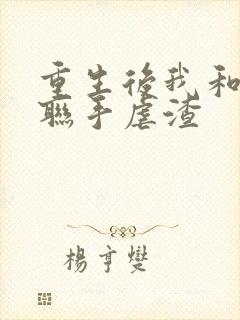 重生後我和
聯手虐渣
楊亨燮